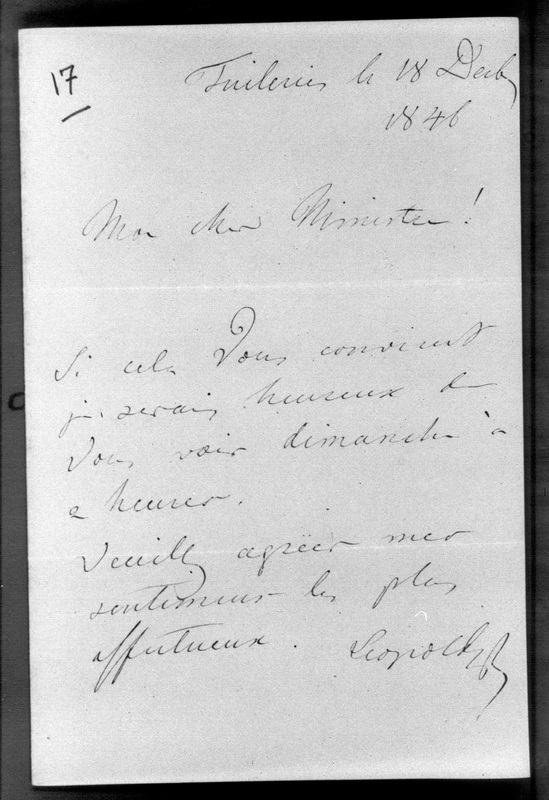 17
Tuileries le 18 Decb
1846
Mon cher Ministre !
Si cela Vous convient
je serais heureux de
Vous voir dimanche à
2 heures.
Veuillez agréer mes
sentimens les plus
affectueux. Leopold